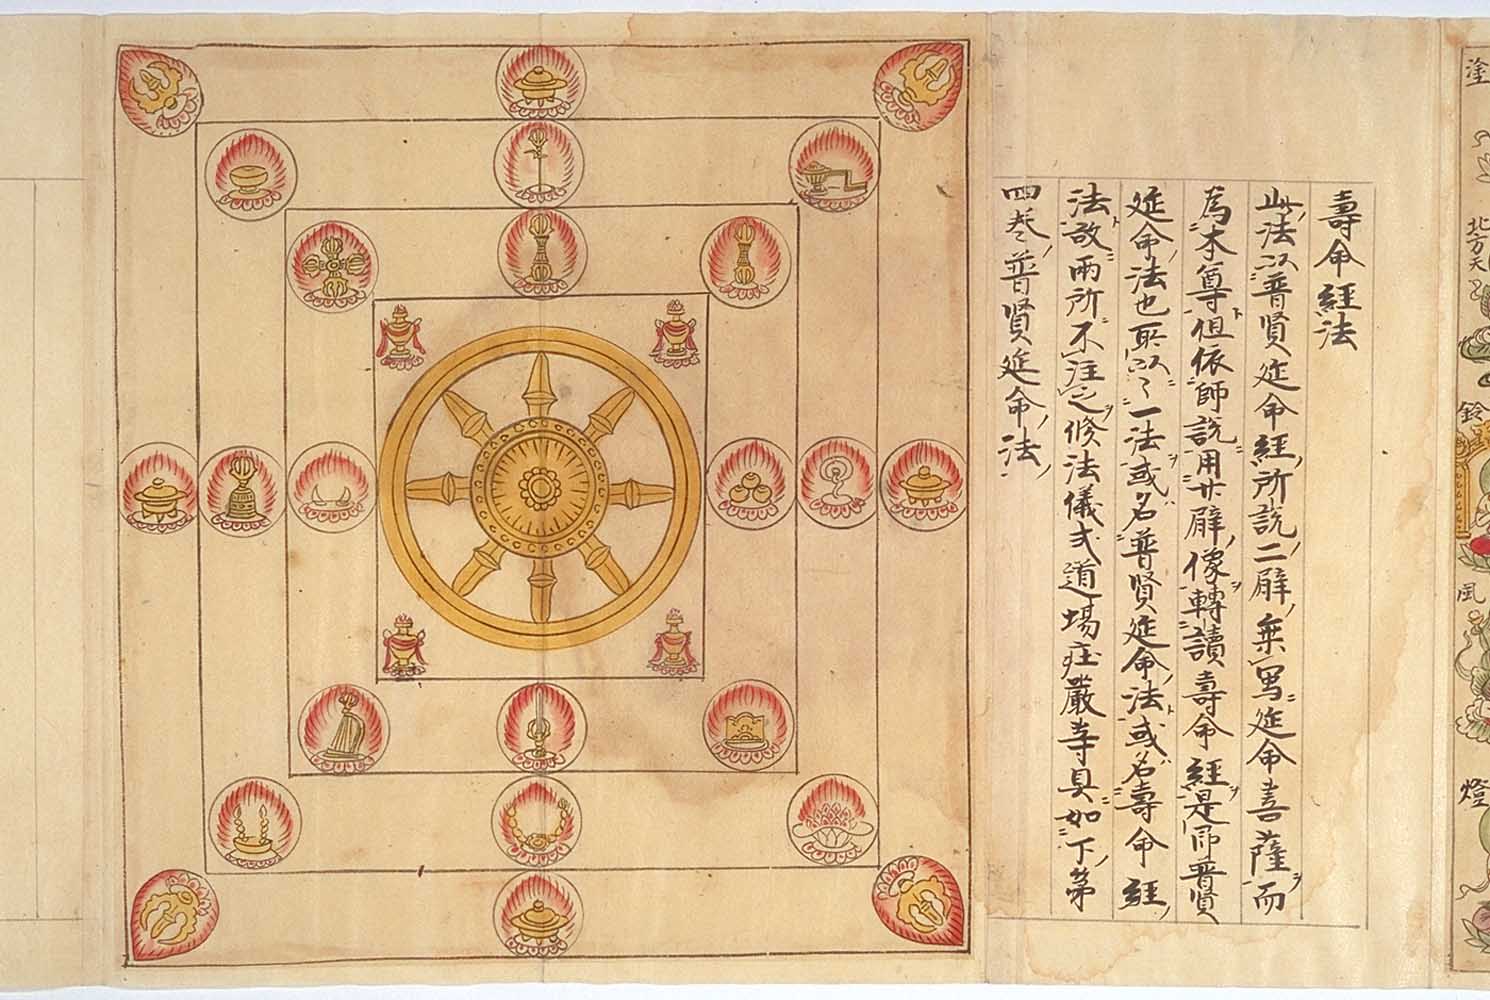 塗
北方天
鈴
風
燈
壽命經法
此法以普賢延命經所説二臂乗寫延命菩薩而
為本尊但依師説用廿臂像轉讀壽命經是即普賢
延命法也取以一法或名普賢延命法或名壽命經
法故両所不注之候法儀式道場庄嚴等具如下第
四巻普賢延命法